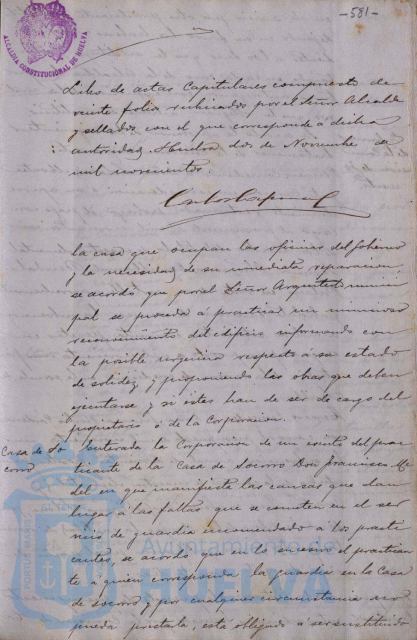 -581-
ALCALDIA CONSTITUCIONAL DE HUELVA
Libro de actas Capitulares compuesto de
veinte folios rubricados por el Señor Alcalde
y sellados con el que corresponde a dicha
autoridad, Huelva dos de Noviembre de
mil novecientos.
la casa que ocupan las oficinas del Gobierno
y la necesidad de su inmediata reparacion
se acordó que por el Señor Arquitecto munici
pal se proceda a practicar un minucioso
reconocimiento del edificio informando con
la posible urgencia respecto a su estado
de solidez y proponiendo las obras que deban
ejecutarse y si estas han de ser de cargo del
propietario o de la Corporacion.
Casa de So
corro
Enterada la Corporacion de un escrito del prac
ticante de la Casa de Socorro Don Francisco
del en que manifiesta las causas que dan
lugar a las faltas que se cometen en el ser
vicio de guardia encomendado a los practi
cantes, se acordó que en lo sucesivo el practican
te a quien corresponda la guardia en la Casa
de Socorro y por cualquier circunstancia no
pueda prestarla, esta obligado a ser sustituido
Ayuntamiento de
HUELVA